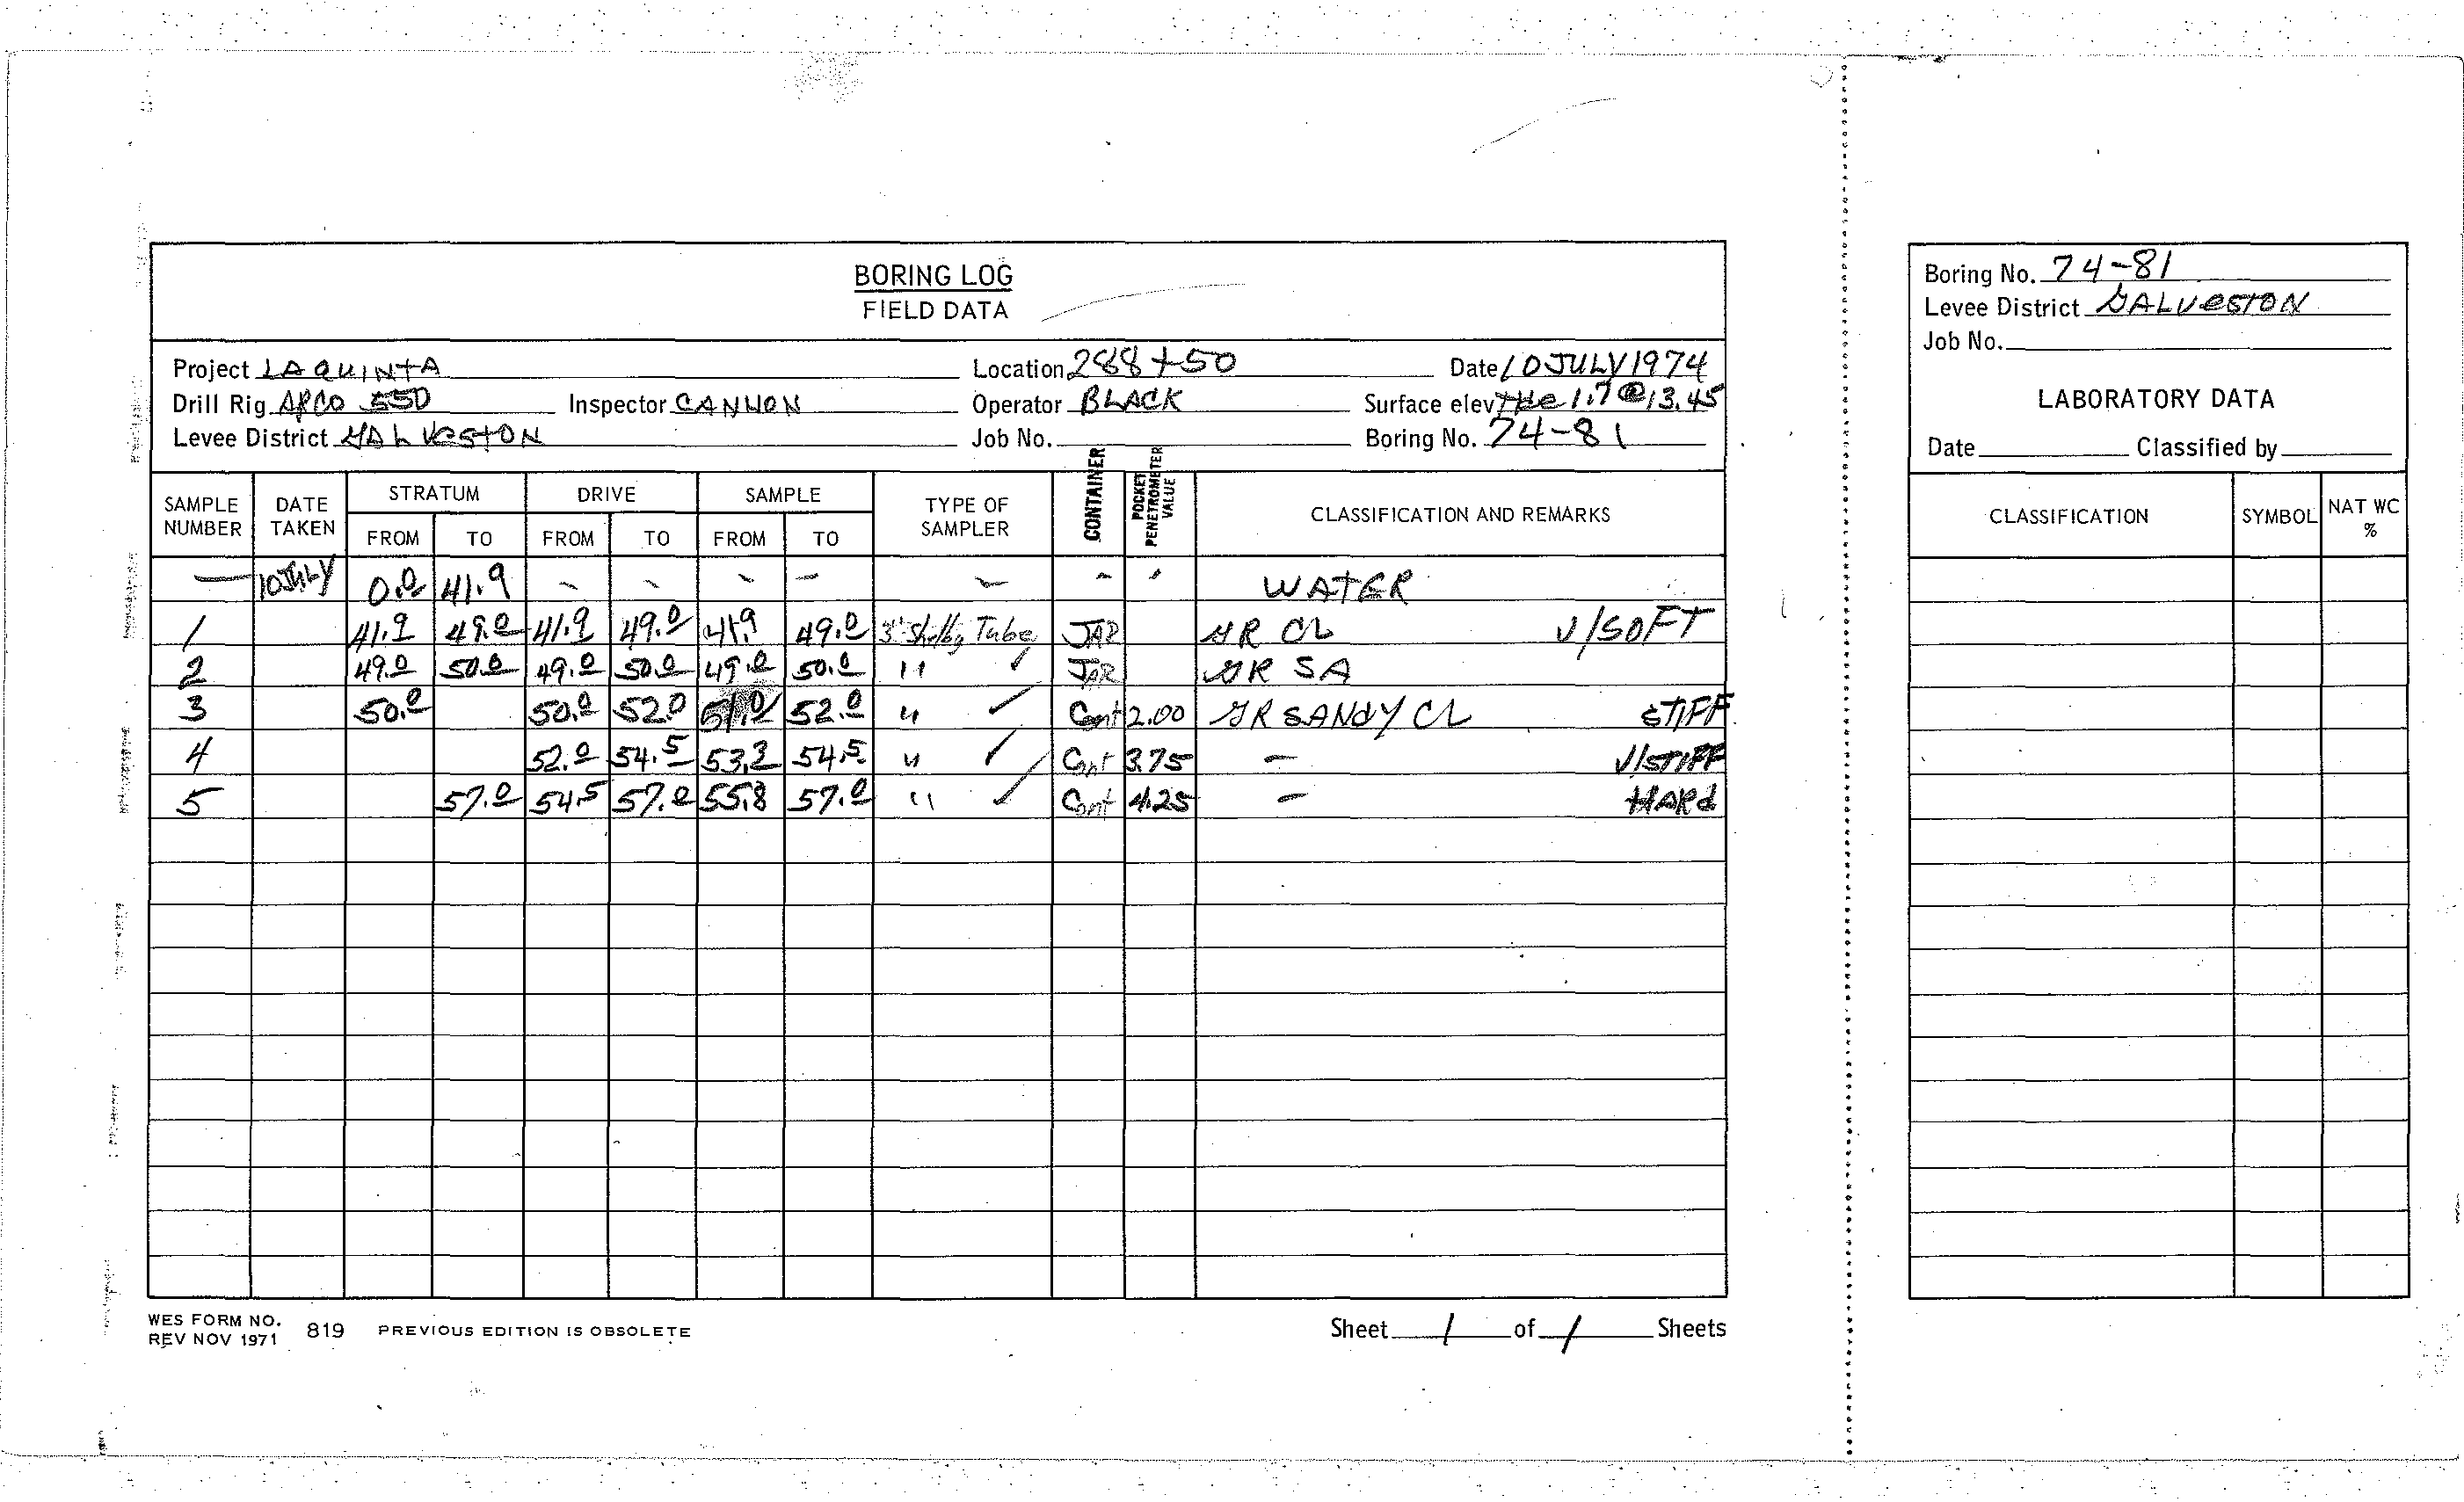 BORING LOG
FIELD DATA
Project LA QUINTA Location 288+50 Date 10 JULY 1974
Drill Rig ARCO 55D Inspector CANNON Operator BLACK Surface elev 1.7 @ 13.45
Levee District GALVESTON Job No. Boring No. 74-81
SAMPLE NUMBER DATE TAKEN STRATUM FROM TO DRIVE FROM TO SAMPLE FROM TO TYPE OF SAMPLER CONTAINER POCKET PENETROMETER VALUE CLASSIFICATION AND REMARKS
— 10 JULY 0.0 41.9 - - - - - - - WATER
1 41.9 49.0 41.9 49.0 41.9 49.0 3" Shelby Tube JAR GR CL V/SOFT
2 49.0 50.0 49.0 50.0 49.0 50.0 " ✓ JAR GR SA
3 50.0 50.0 52.0 51.0 52.0 " ✓ Cont 2.00 GR SANDY CL STIFF
4 52.0 54.5 53.2 54.5 " ✓ Cont 3.75 - V/STIFF
5 57.0 54.5 57.0 55.8 57.0 " ✓ Cont 4.25 - HARd
WES FORM NO. 819 PREVIOUS EDITION IS OBSOLETE
REV NOV 1971
Sheet 1 of 1 Sheets
Boring No. 74-81
Levee District GALVESTON
Job No.
LABORATORY DATA
Date Classified by
CLASSIFICATION SYMBOL NAT WC %